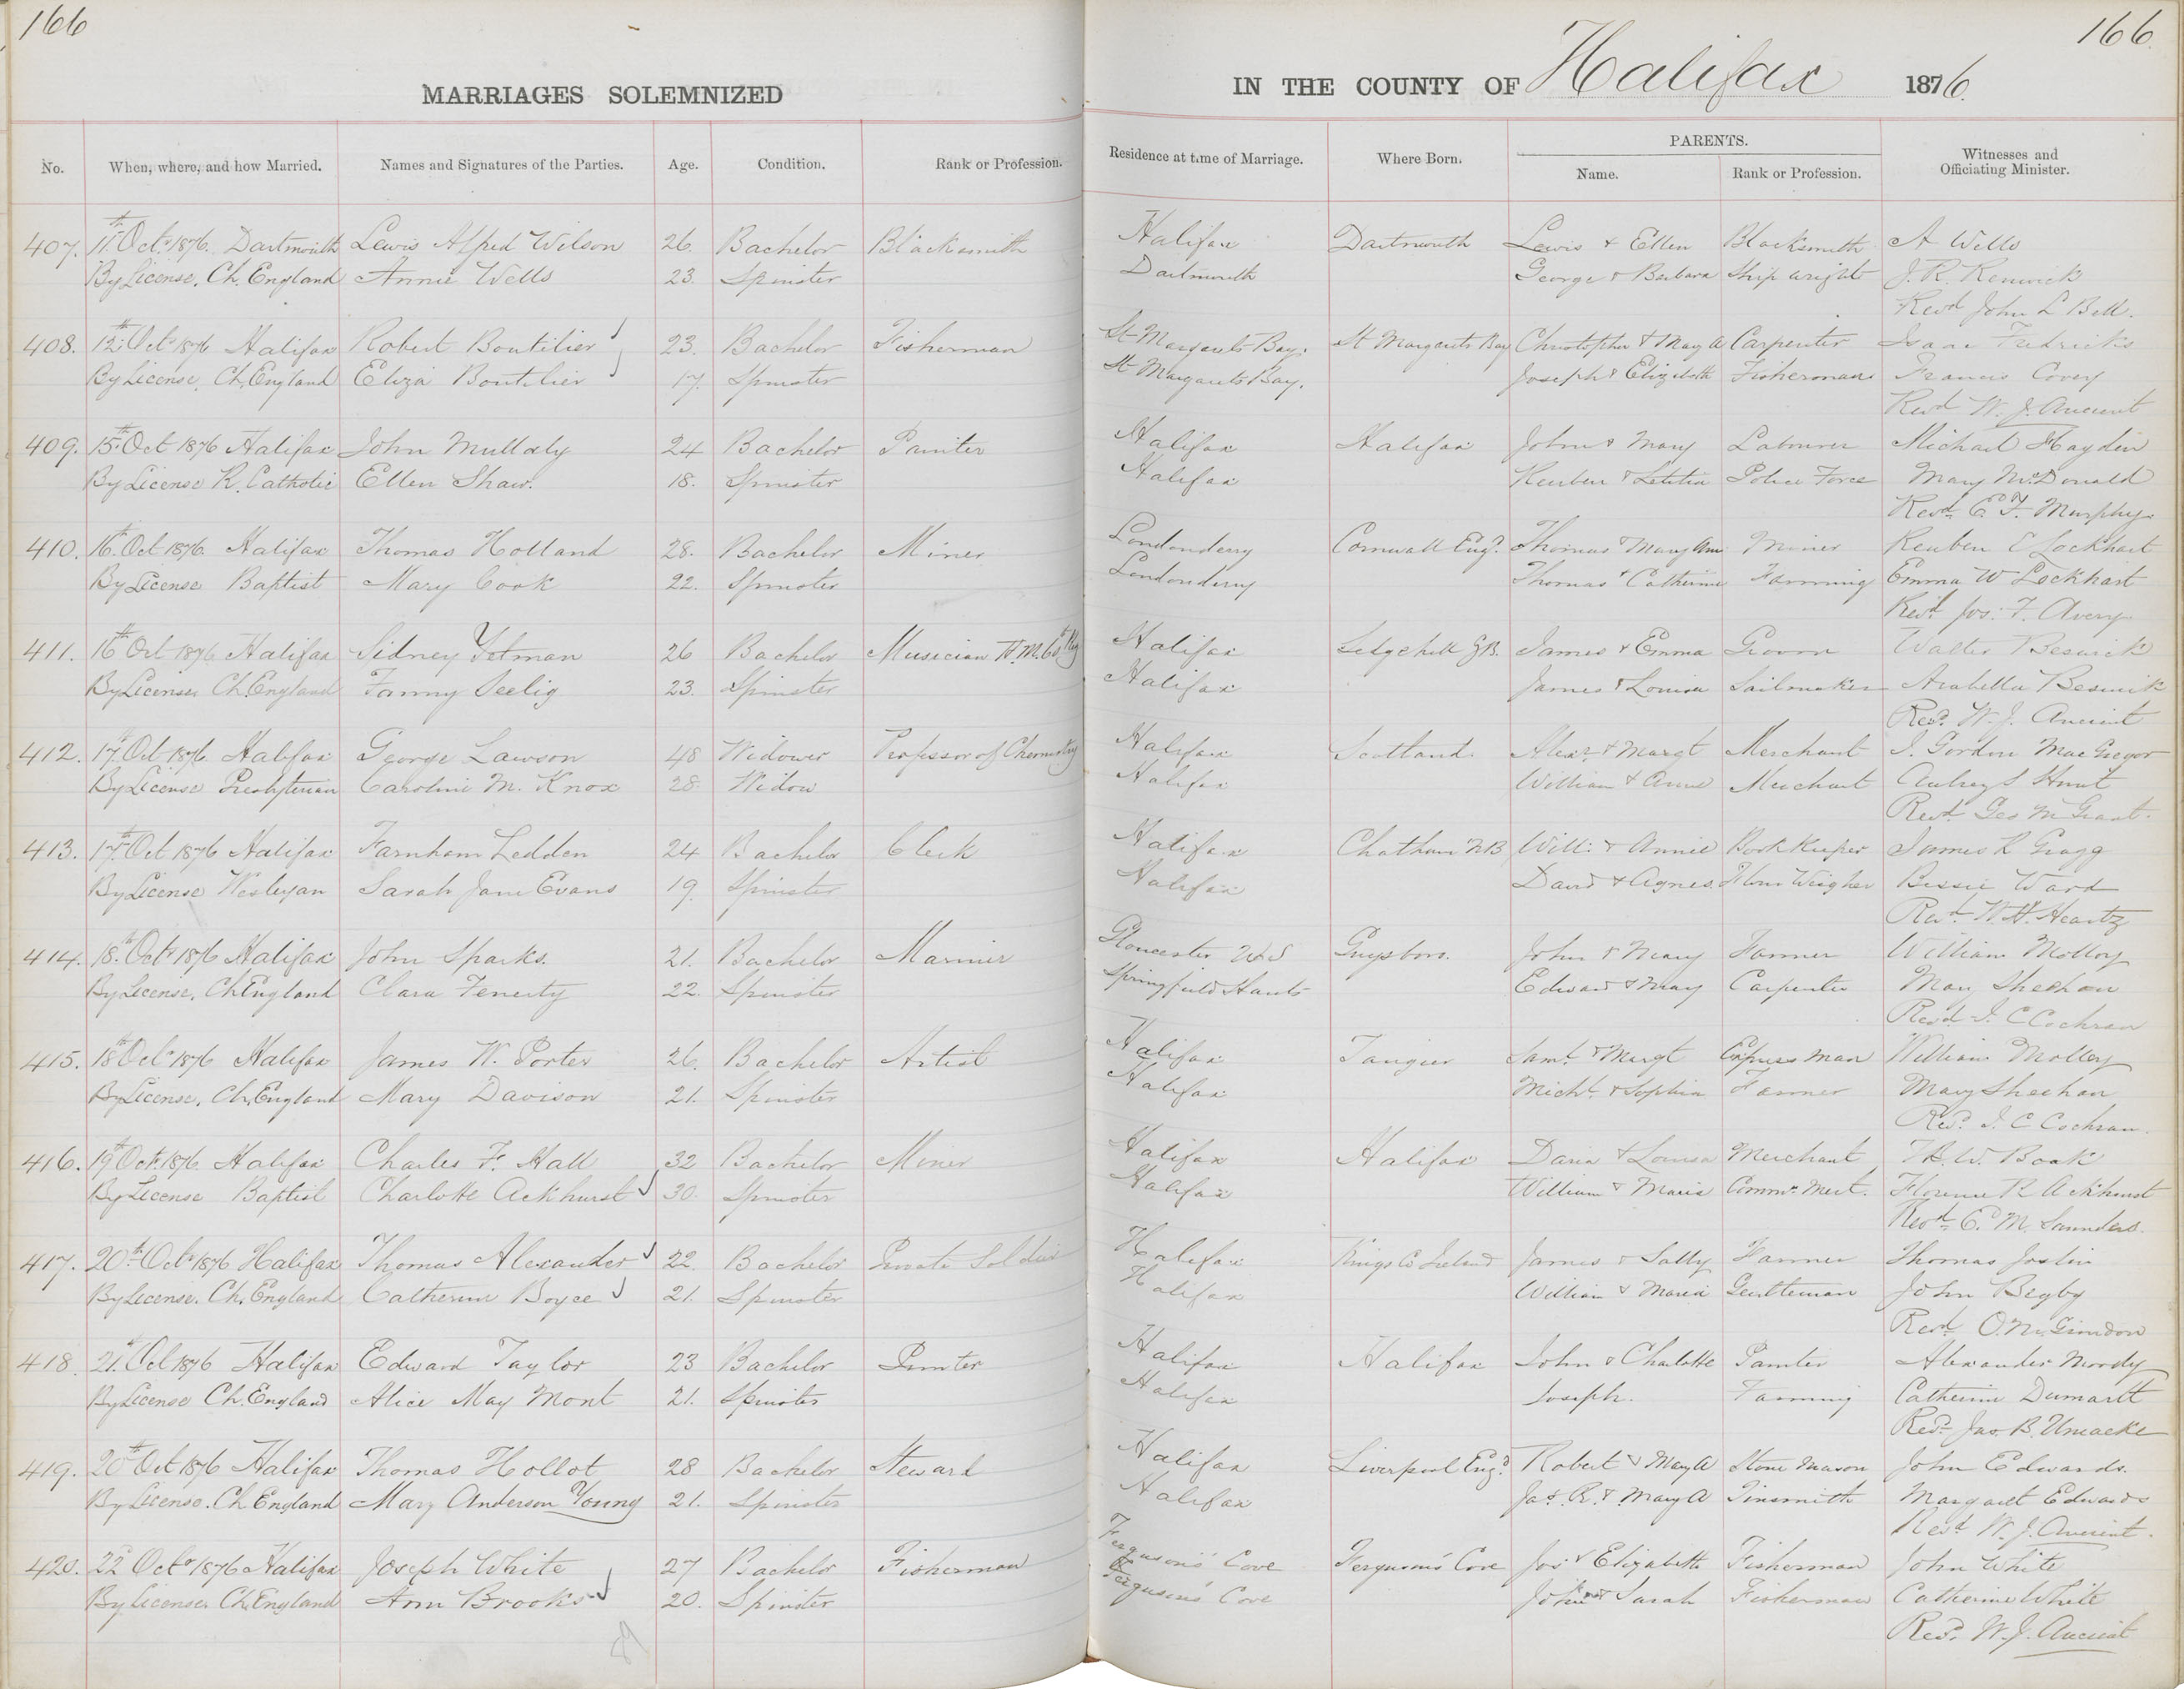 166
166
MARRIAGES SOLEMNIZED IN THE COUNTY OF Halifax 1876.
No. When, where, and how Married. Names and Signatures of the Parties. Age. Condition. Rank or Profession. Residence at time of Marriage. Where Born. PARENTS. Name. Rank or Profession. Witnesses and Officiating Minister.
407. 11th Oct. 1876. Dartmouth Lewis Alfred Wilson 26. Bachelor Blacksmith Halifax Dartmouth Lewis & Ellen Blacksmith A Wells
By License, Ch. England Annie Wells 23. Spinster Dartmouth George & Barbara Ship wright J. R. Renwick
Revd John L Bell.
408. 12th Oct 1876 Halifax Robert Boutilier 23. Bachelor Fisherman St Margarets Bay. St Margarets Bay Christopher & Mary A Carpenter Isaac Fredricks
By License, Ch. England Eliza Boutilier 17. Spinster St Margarets Bay. Joseph & Elizabeth Fisherman Francis Covey
Revd W. J. Ancient
409. 15th Oct 1876 Halifax John Mullaly 24 Bachelor Painter Halifax Halifax John & Mary Labourer Michael Hayden
By License R. Catholic Ellen Shaw. 18. Spinster Halifax Reuben & Letitia Police Force Mary McDonald
Revd E. F. Murphy
410. 16. Oct 1876. Halifax Thomas Holland 28. Bachelor Miner Londonderry Cornwall Engd. Thomas & Mary Ann Miner Reuben E Lockhart
By License Baptist Mary Cook 22. Spinster Londonderry Thomas & Catherine Farming Emma W Lockhart
Revd Jos: F. Avery
411. 16th Oct 1876 Halifax Sidney Yetman 26 Bachelor Musician H.M. 60th Reg Halifax G.B. James & Emma Groom Walter Beswick
By License Ch. England Fanny Seelig 23. Spinster Halifax James & Louisa Sailmaker Arabella Beswick
Revd. W. J. Ancient
412. 17. Oct 1876. Halifax George Lawson 48 Widower Professor of Chemistry Halifax Scotland Alexr. & Margt Merchant J. Gordon MacGregor
By License Presbyterian Caroline M. Knox 28 Widow Halifax William & Anne Merchant Aubrey S Hunt
Revd Geo M Grant.
413. 17th Oct 1876 Halifax Farnham Ledden 24 Bachelor Clerk Halifax Chatham NB Will: & Annie Book Keeper James R Gragg
By License Wesleyan Sarah Jane Evans 19. Spinster Halifax David & Agnes. Flour Weigher Bessie Ward
Revd. W. H. Heartz
414. 18th Oct 1876 Halifax John Sparks. 21. Bachelor Mariner Gloucester U.S Guysboro. John & Mary Farmer William Molloy
By License, Ch England Clara Fenerty 22. Spinster Springfield Hants Edward & Mary Carpenter Mary Sheehan
Revd J. C Cochran
415. 18th Oct 1876 Halifax James W. Porter 26. Bachelor Artist Halifax Tangier Saml. & Margt Express man William Molloy
By License, Ch. England Mary Davison 21. Spinster Halifax Michl. & Sophia Farmer Mary Sheehan
Revd. J. C. Cochran.
416. 19th Oct. 1876. Halifax Charles F. Hall 32 Bachelor Miner Halifax Halifax & Louisa Merchant W. Book
By License Baptist Charlotte Ackhurst 30. Spinster Halifax William & Maria Commn. Mert. Florence R Ackhurst
Revd E. M. Saunders.
417. 20th Oct 1876 Halifax Thomas Alexander 22. Bachelor Private Soldier Halifax Kings Co Ireland James & Sally Farmer Thomas Joslin
By License. Ch. England Catherine Boyce 21. Spinster Halifax William & Maria Gentleman John Bigby
Revd O. M. Grindon
418. 21st. Oct 1876 Halifax Edward Taylor 23 Bachelor Painter Halifax Halifax John & Charlotte Painter Alexander Mordy
By License Ch. England Alice May Mont 21. Spinster Halifax Joseph. Farming Catherine Dumaritt
Revd. Jno B. Uniacke
419. 20th Oct 1876 Halifax Thomas Hollot 28 Bachelor Steward Halifax Liverpool Engd. Robert & Mary A Stone Mason John Edwards.
By License. Ch England Mary Anderson Young 21. Spinster Halifax Jas. R. & Mary A Tinsmith Margaret Edwards
Revd W. J. Ancient.
420. 22d Oct 1876 Halifax Joseph White 27 Bachelor Fisherman Ferguson's Cove Ferguson's Cove Jos & Elizabeth Fisherman John White
By License Ch. England Ann Brooks 20. Spinster Ferguson's Cove John & Sarah Fisherman Catherine White
Revd. W. J. Ancient